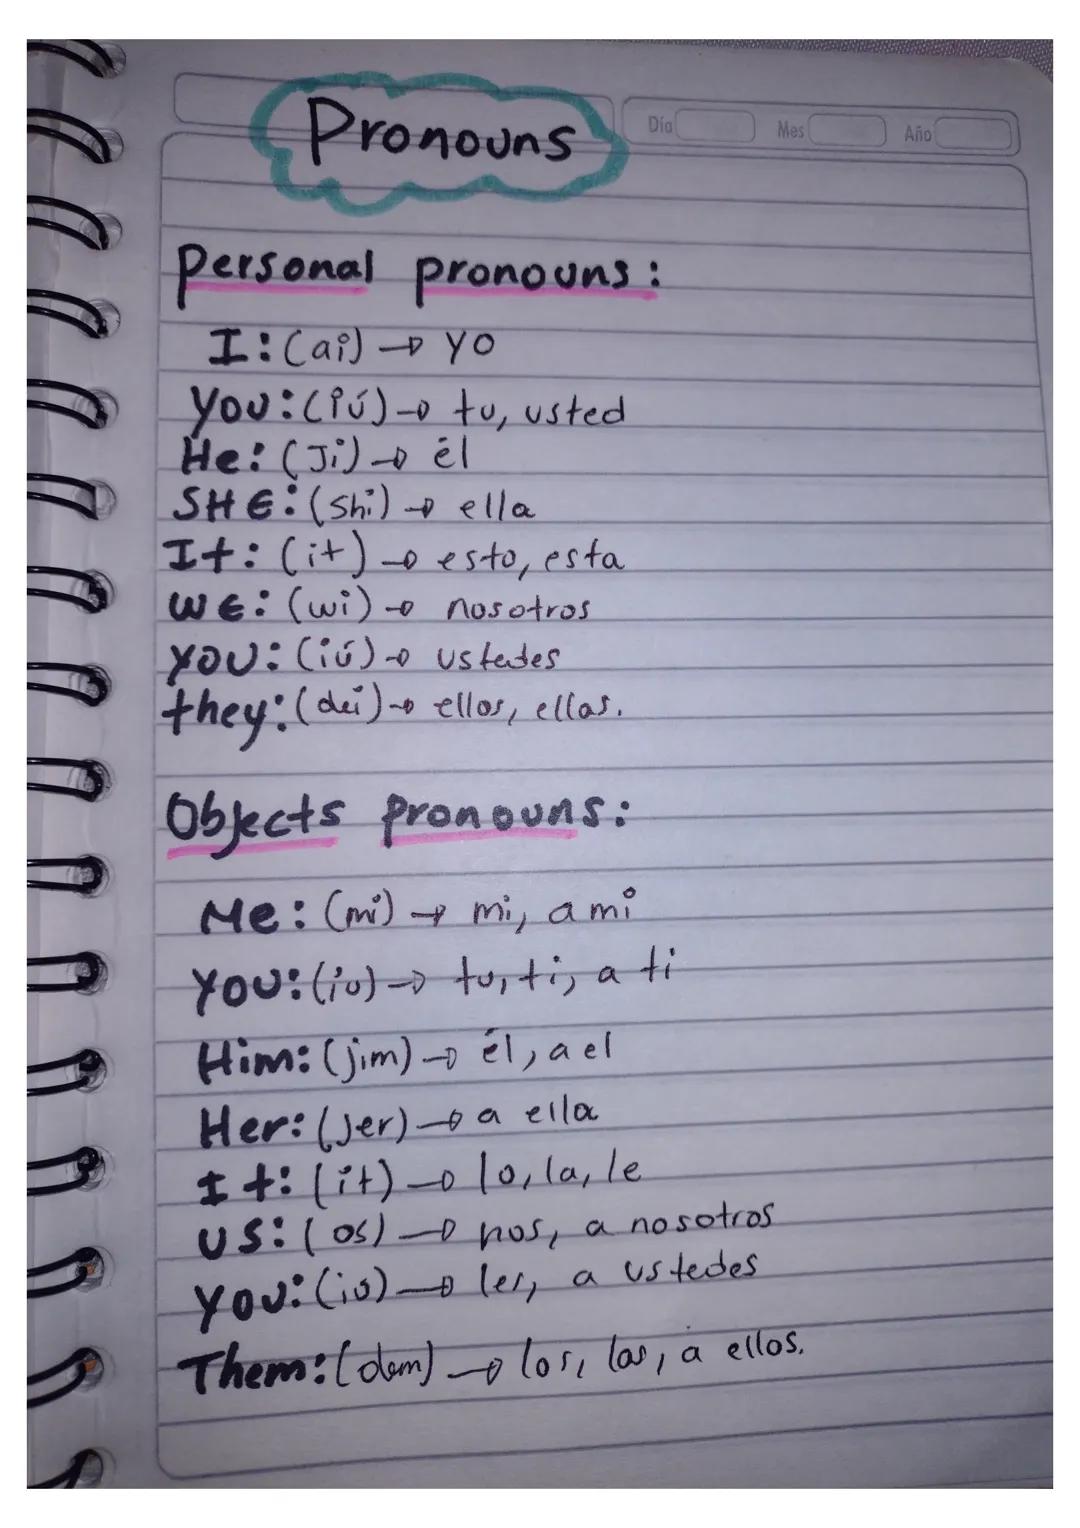 Pronouns
Día Mes Año
Personal pronouns:
I: (ai) → yo
you: (iú) → tu, usted
He: (Ji) → él
SHE: (shi) → ella
It: (it) → esto, esta
WE: (wi) → nosotros
YOU: (iú) → ustedes
they: (dei) → ellos, ellas.
Objects pronouns:
Me: (mi) → mi, a mi
YOU: (iu) → tu, ti, a ti
Him: (jim) → él, a el
Her: (jer) → a ella
It: (it) → lo, la, le
US: (os) → nos, a nosotros
YOU: (iu) → les, a ustedes
Them: (dem) → los, las, a ellos.